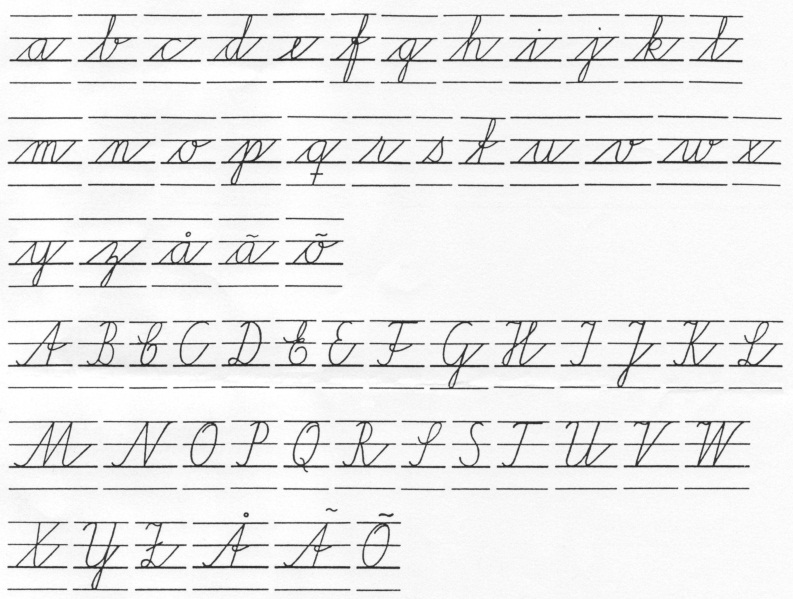 a b c d e f g h i j k l
m n o p q r s t u v w x
y z å ã õ
A B C C D E E F G H I J K L
M N O P Q R S S T U V W
X Y Z Å Ã Õ